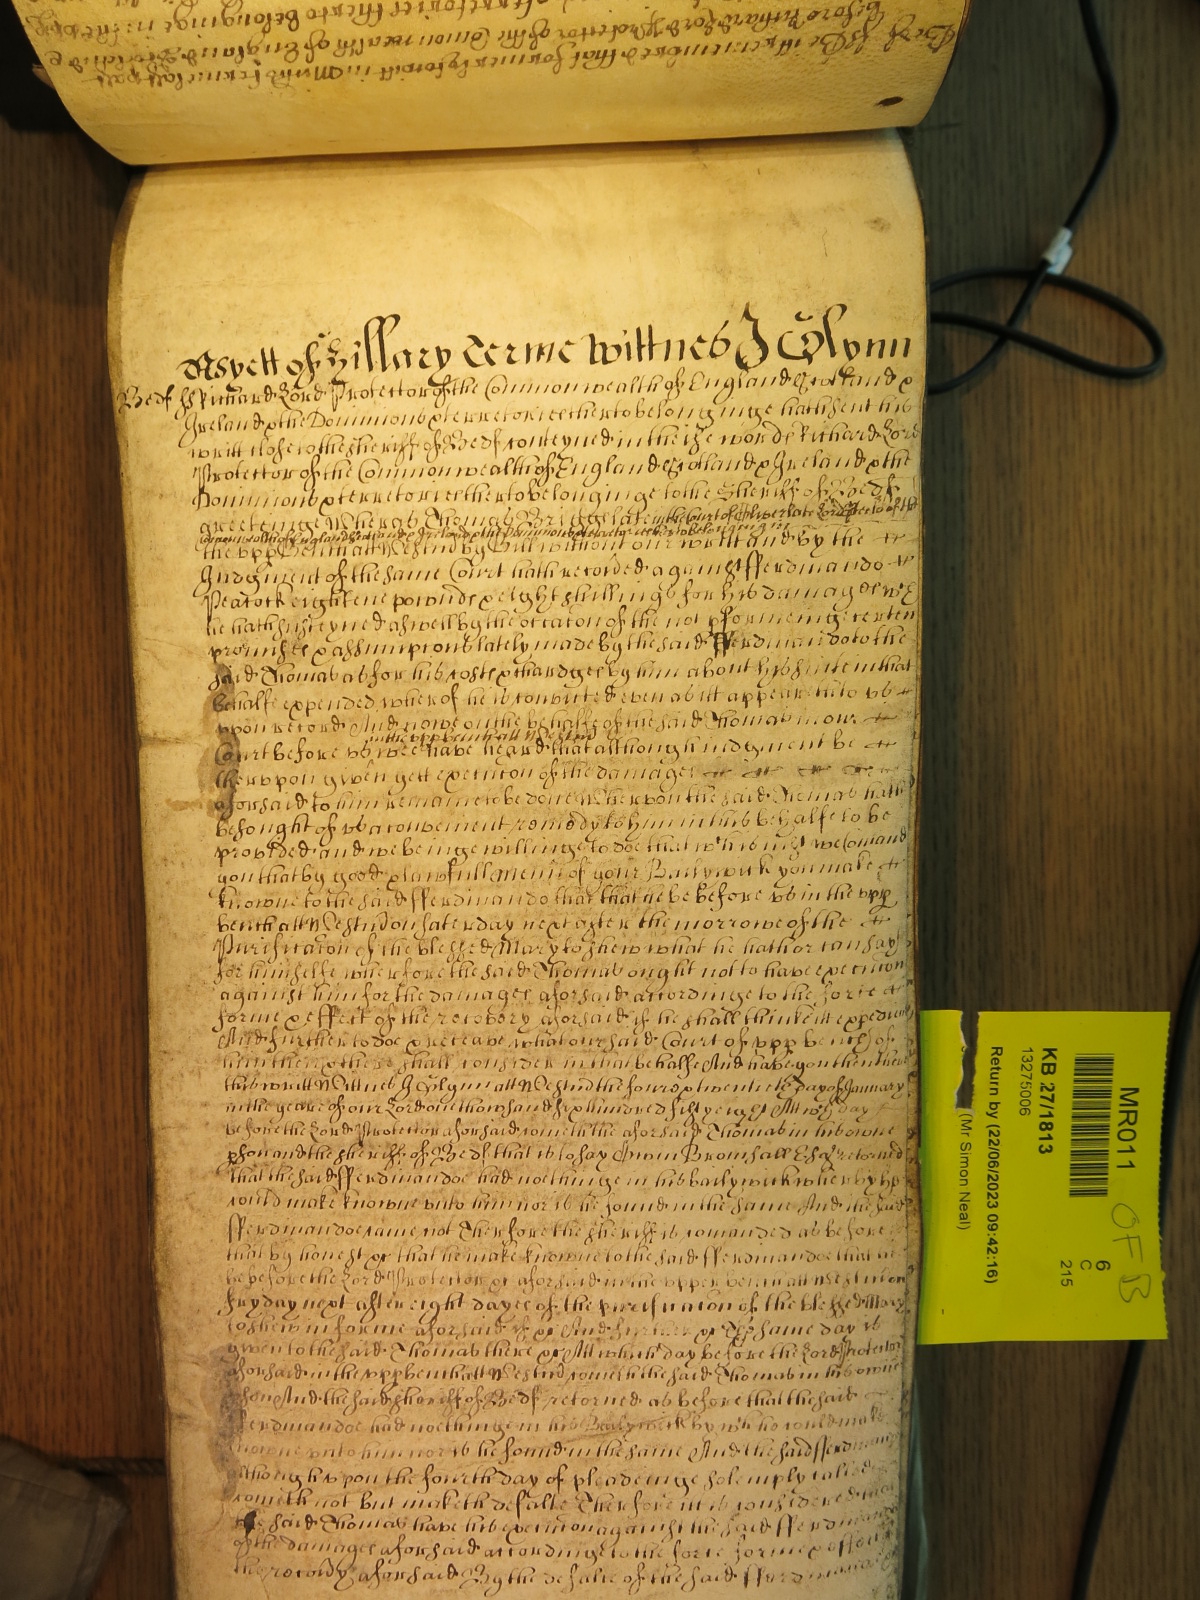 Beds ss Be itt remembred that formerly towitt in
before Richard Lord Protector of the Comonwealth of England Scotland
territories thereto belonginge in the upp
As yett of Hillary Terme Wittnes J Glynn
Bedf ss Richard Lord Protector of the Commonwealth of England Scotland &
Ireland & the Dominions & terretories thereto belonginge hath sent his
writt close to the Sheriff of Bedf conteyned in these words Richard Lord
Protector of the Commonwealth of England Scotland & Ireland & the
Dominions & terretories thereto belonginge to the Sheriff of Bedf
greetinge Whereas Thomas Brigge late in the Court of Oliver late Lord Protector of the
Comonwealth of England Scotland & Ireland & the Dominions & terretories thereto belonginge
the upp Bench att Westm by Bill without our writt and by the
Judgment of the same Court hath recovered against Fferdinando
Peacock eightene pownds & eight shillings for his damages wch
he hath susteyned aswell by the occacon of the not pformeinge certen
promises & assumptions lately made by the said Fferdinando to the
said Thomas as for his costs & chardges by him about his suite in that
behalfe expended wherof he is convicted even as itt appeareth to us
upon record And nowe on the behalfe of the said Thomas in our
in the upp bench att Westm
Court before us wee have heard that although iudgment be
therupon given yett execucon of the damages
aforsaid to him remaine to be done Wherupon the said Thomas hath
besought of us a convenient remedy to him in this behalfe to be
provided and we beinge willinge to doe that wch is iust we comand
you that by good & lawfull menn of your Bailywick you make
knowne to the said Fferdinando that that he be before us in the upp
bench att Westm on Saterday next after the morrowe of the
Purificacon of the blessed Mary to shew what he hath or can say
for himselfe wherfore the said Thomas ought not to have execucion
against him for the damages aforsaid accordinge to the force
forme & effect of the recovery aforsaid if he shall thinke itt expedient
And further to doe & receave what our said Court of upp bench of
him then & there shall consider in that behalfe And have you then there
this writt Wittnes J Glynn att Westm the four & twentieth day of January
in the yeare of our Lord one thowsand six hundred fifty eight Att wch day
before the Lord Protector aforsaid cometh the aforsaid Thomas in his owne
pson and the sheriff of Bedf that is to say Bromsall Esqr retorned
that the said Fferdinandoe had nothinge in his bailywick wherby he
could make knowne unto him nor is he found in the same And the said
Fferdinandoe came not Therfore the Sheriff is comanded as before
that by honest &c that he make knowne to the said Fferdinandoe that he
be before the Lord Protector &c aforsaid in the upper bench att Westm on
Fryday next after eight dayes of the purificacon of the blessed Mary
to shew in forme aforsaid if &c And further &c The same day is
given to the said Thomas there &c Att which day before the Lord Protector
aforsaid in the upp bench att Westm cometh the said Thomas in his owne
pson And the said sheriff of Bedf retorned as before that the said
Fferdinandoe had nothinge in his Bailywick by wch he could make
knowne unto him nor is he found in the same And the said Fferdinando
although upon the fourth day of pleadeinge solemply called
cometh not but maketh defalte Therfore it is considered that
the said Thomas have his execucion against the said Fferdinando
of the damages aforsaid accordinge to the force forme & effect
the recovery aforsaid By the defalte of the said Fferdinando
MR011
OFB
6
C
215
KB 27/1813
13275006
Return by (22/06/2023 09:42:16)
(Mr Simon Neal)